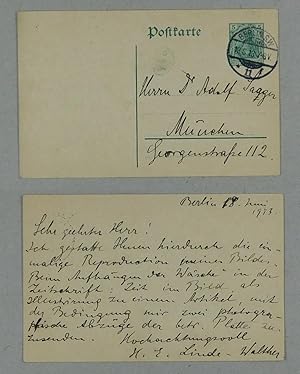 Postkarte
Herrn Dr Adolf Jagger
München
Georgenstraße 112.
Berlin 18 Juni
1913.
Sehr geehrter Herr!
Ich gestatte Ihnen hierdurch die ein-
malige Reproduction meines Bildes.
Beim Aufhängen der Wäsche in der
Zeitschrift: Zeit im Bild, als
Illustrirung zu einem Artikel, mit
der Bedingung mir zwei photogra-
phische Abzüge der betr. Platte zu-
zusenden.
Hochachtungsvoll
H. E. Linde-Walther